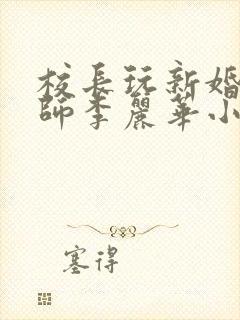 校長玩新婚
師李麗華小
塞得